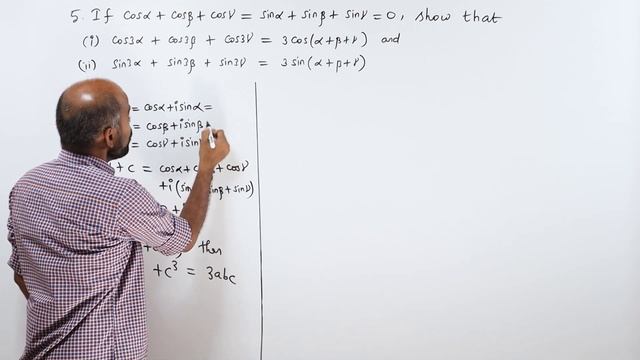 5. If cosα + cosβ + cosγ = sinα + sinβ + sinγ = 0, show that
(i) cos3α + cos3β + cos3γ = 3cos(α+β+γ) and
(ii) sin3α + sin3β + sin3γ = 3sin(α+β+γ)
= cosα + i sinα =
= cosβ + i sinβ
= cosγ + i sin
+ c = cosα + c + cosγ
+ i (sin sinβ + sinγ)
then
+ c³ = 3abc